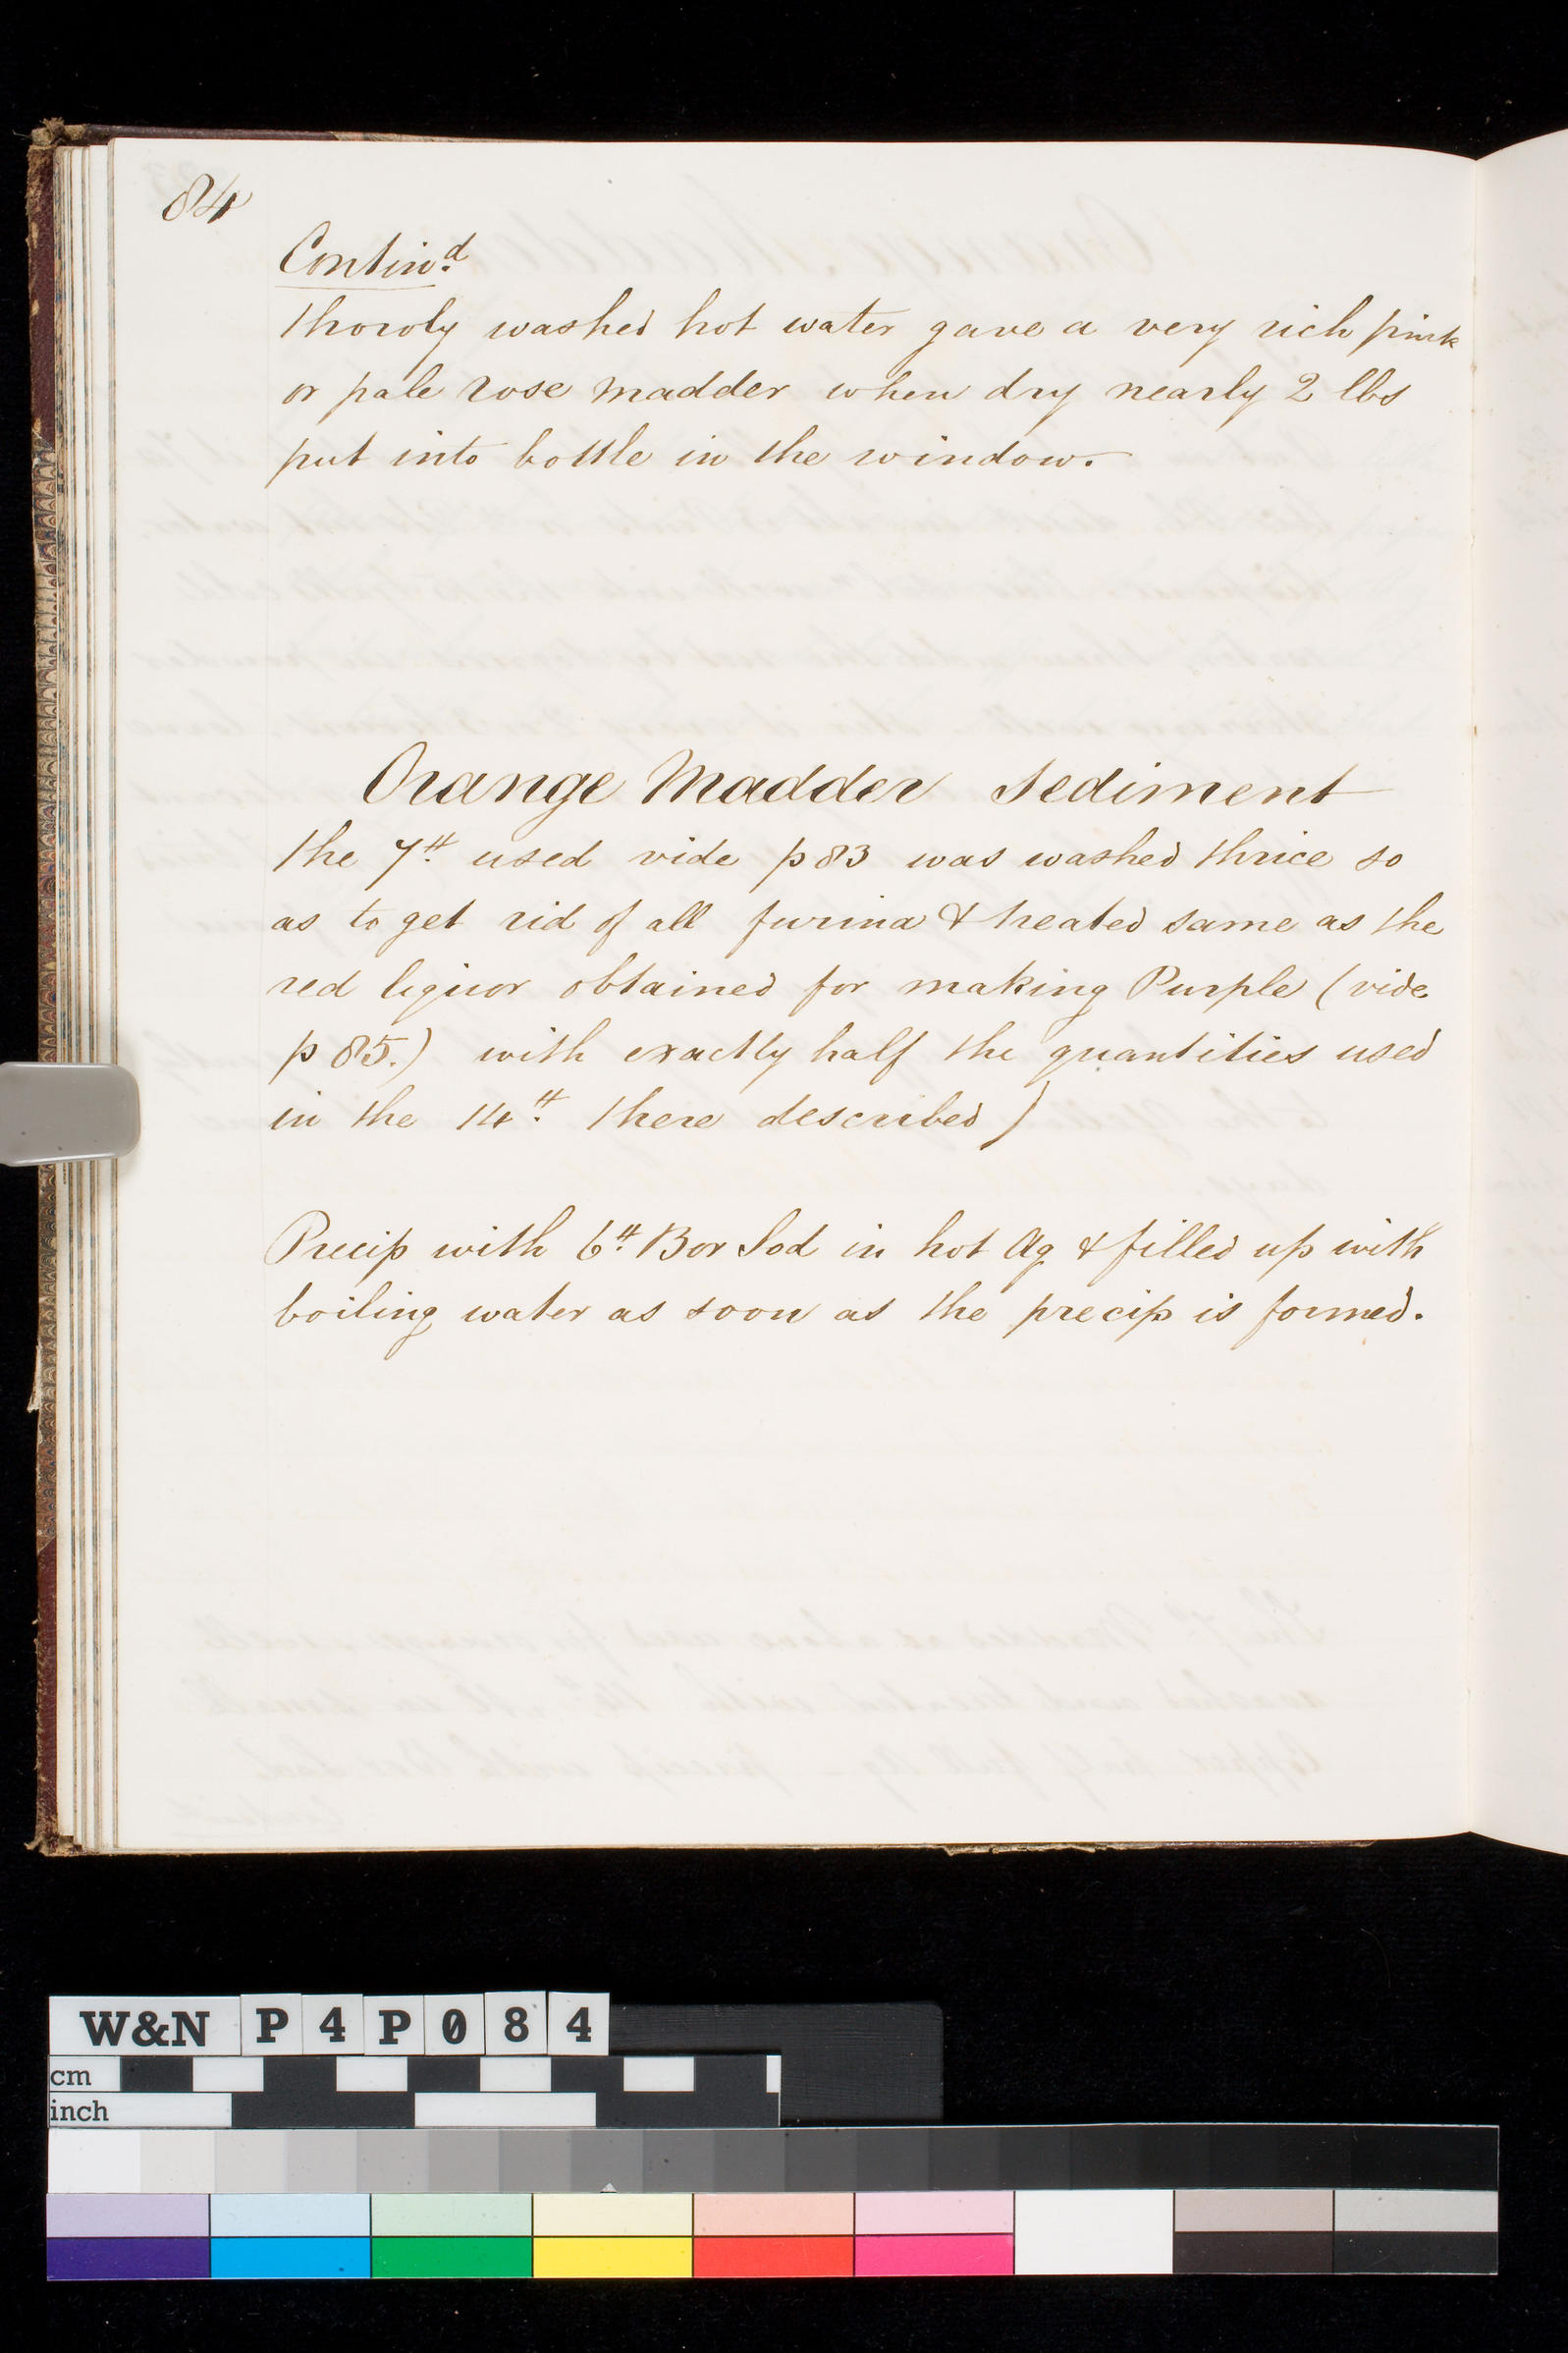 84
Contin.d
thoroly washed hot water gave a very rich pink
or pale rose madder when dry nearly 2 lbs
put into bottle in the window.
Orange Madder Sediment
the 7.# used vide p 83 was washed thrice so
as to get rid of all furina & treated same as the
red liquor obtained for making Purple (vide
p 85.) with exactly half the quantities used
in the 14.# there described)
Precip with 6.# Bor Sod in hot Aq & filled up with
boiling water as soon as the precip is formed.
W&N P4P084
cm
inch